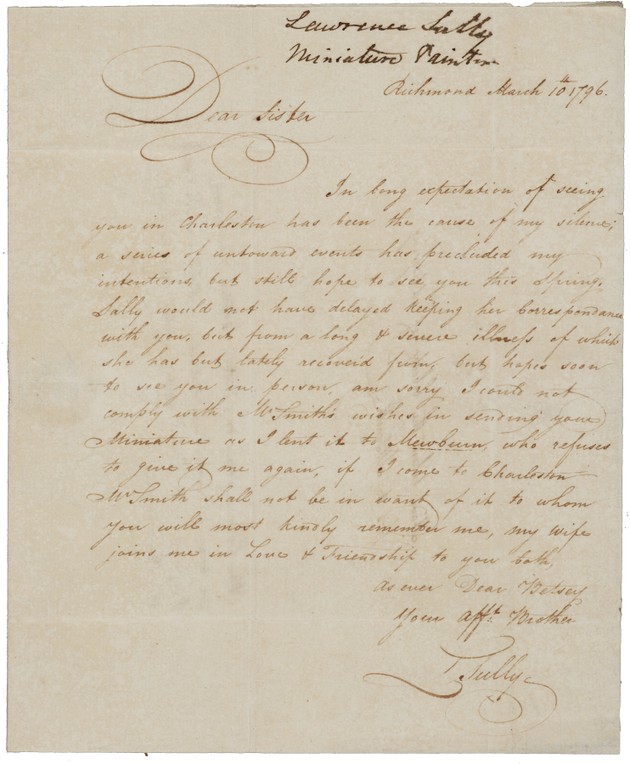 Lawrence Sully
Miniature Painter
Richmond March 10th 1796.
Dear Sister
In long expectation of seeing
you in Charleston has been the cause of my silence;
a series of untoward events has precluded my
intentions, but still hope to see you this Spring,
Sally would not have delayed keeping her Correspondance
with you, but from a long & severe illness of which
she has but lately recoverid from, but hopes soon
to see you in person, am sorry I could not
comply with Mr Smith's wishes in sending your
Miniature as I lent it to Mewburn, who refuses
to give it me again, if I come to Charleston
Mr Smith shall not be in want of it to whom
you will most kindly remember me, my wife
joins me in Love & Friendship to you both,
as ever Dear Betsey
Your Afft. Brother
L Sully